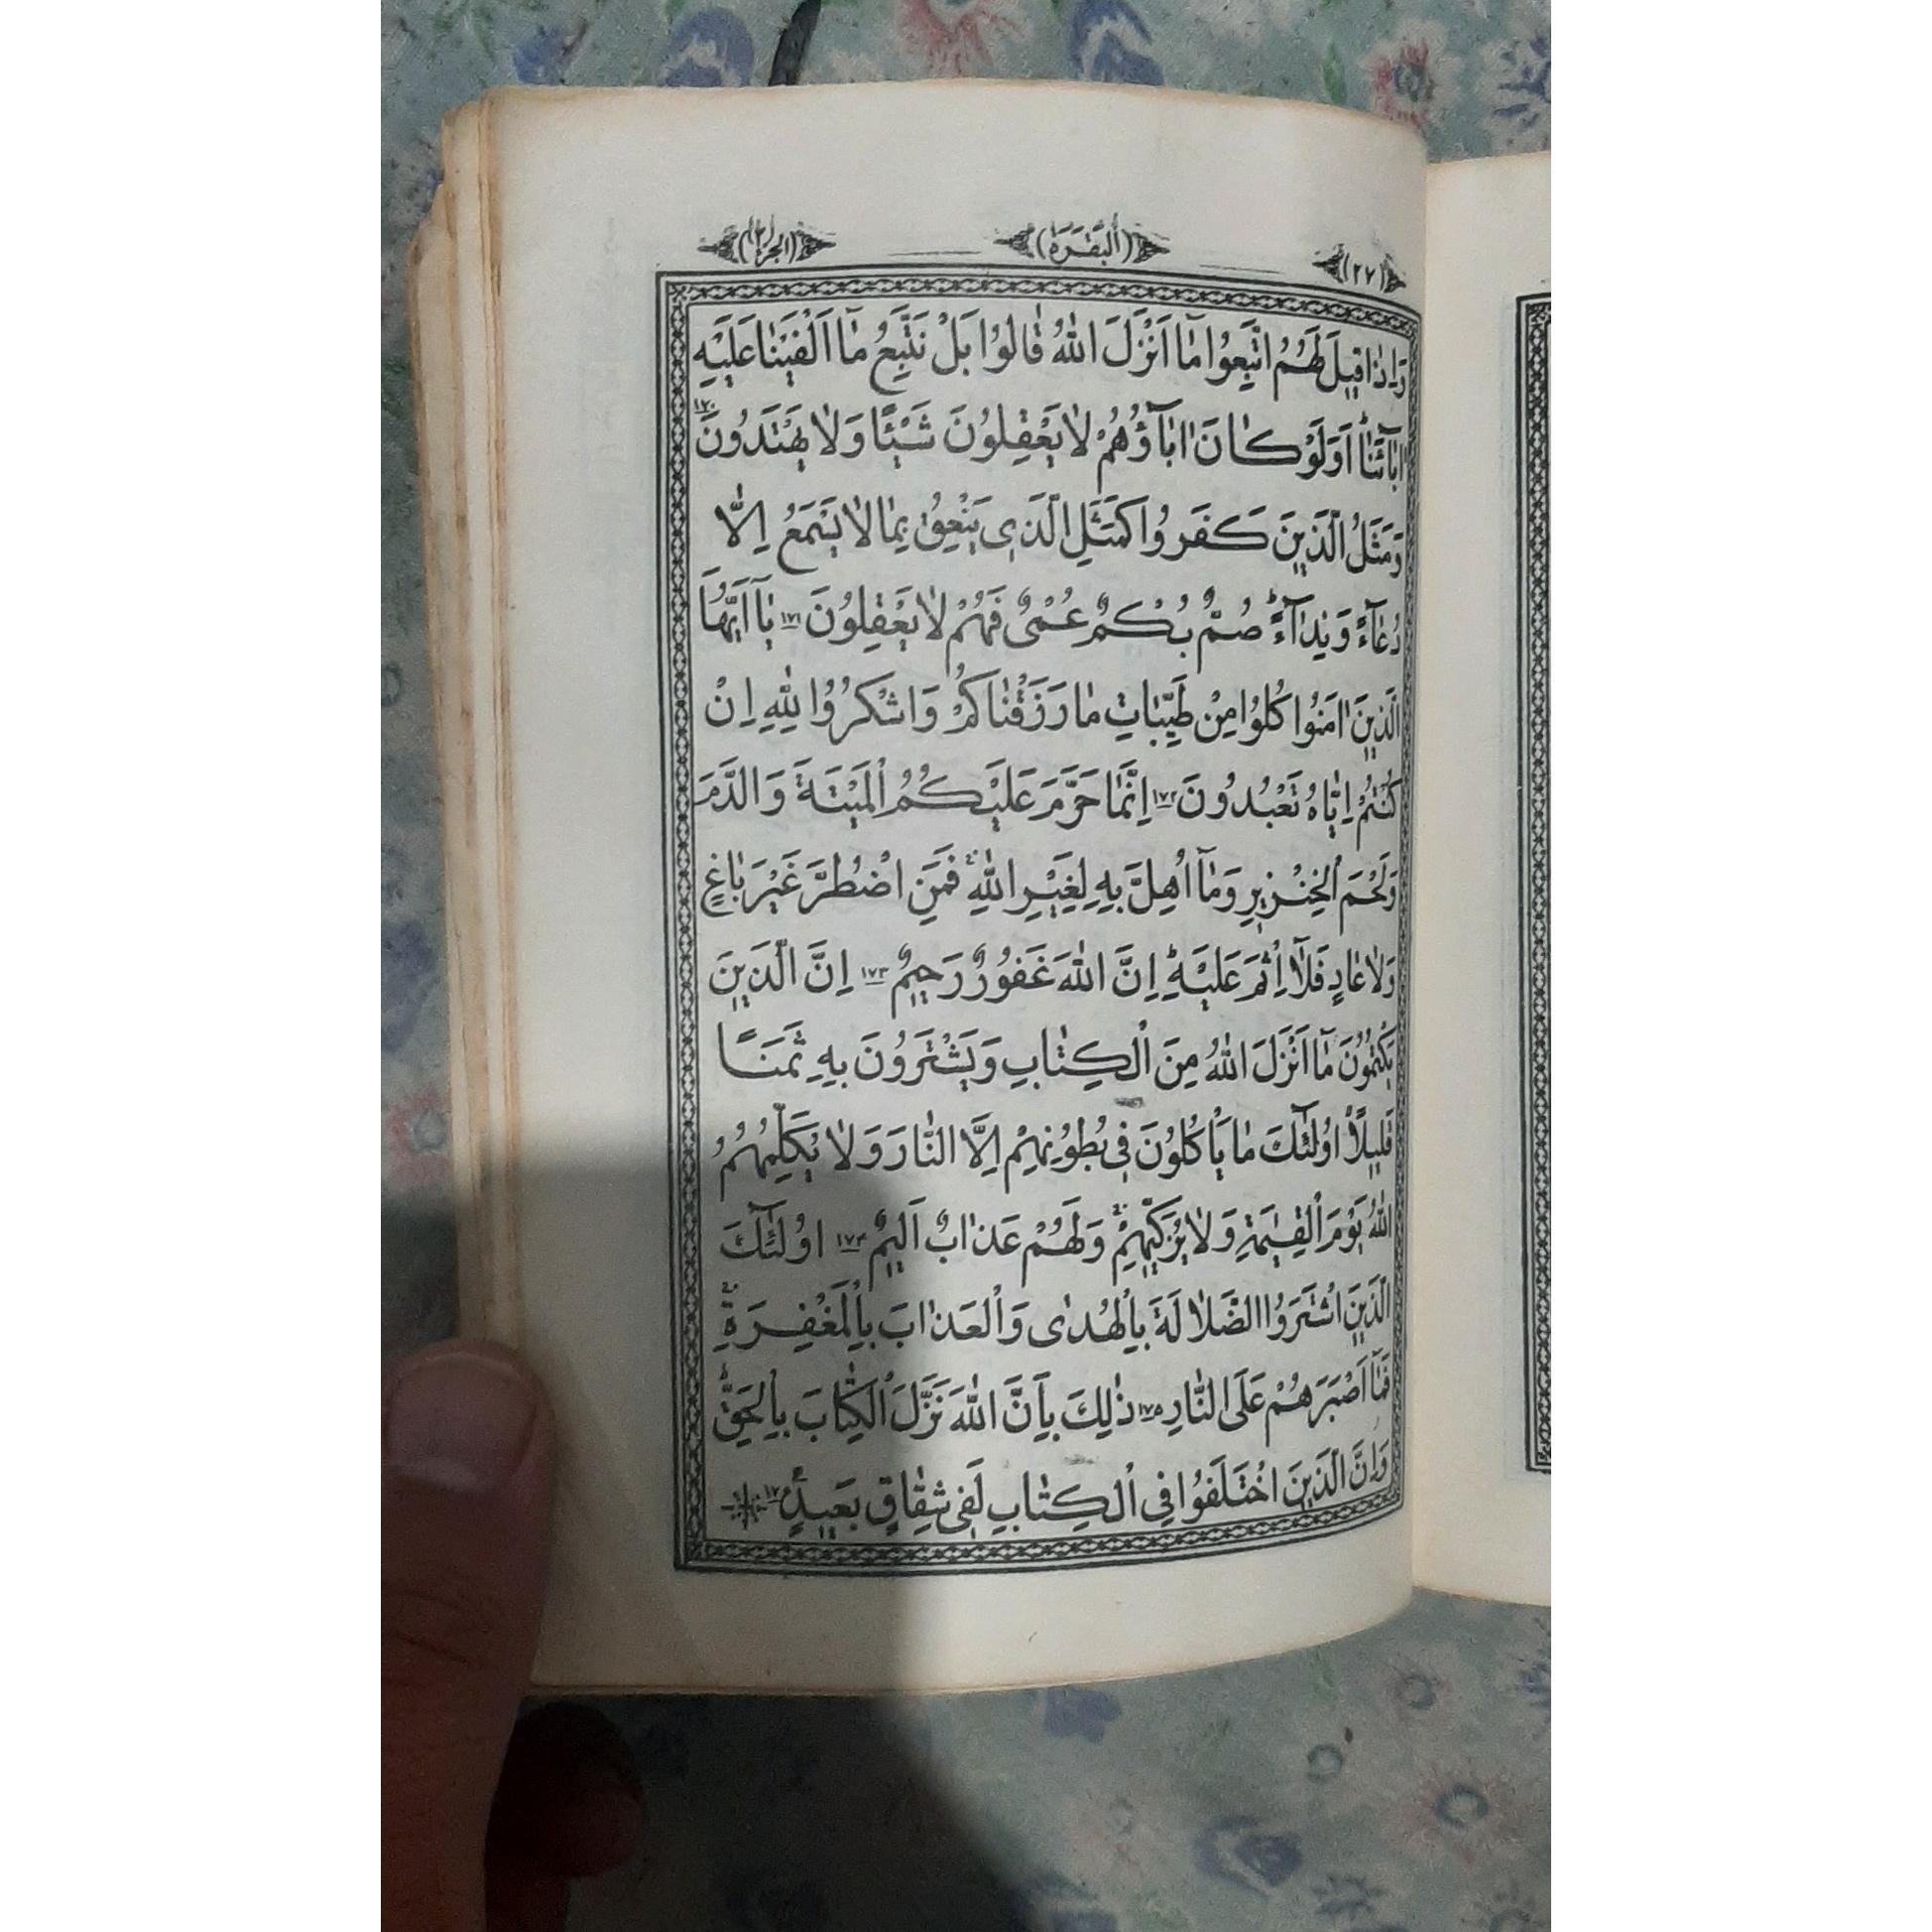 (٢٧) (اَلْبَقَرَة) (الجزء٢)
وَاِذَا قٖيلَ لَهُمُ اتَّبِعُوا مَٓا اَنْزَلَ اللّٰهُ قَالُوا بَلْ نَتَّبِعُ مَٓا اَلْفَيْنَا عَلَيْهِ
اٰبَٓاءَنَاۜ اَوَلَوْ كَانَ اٰبَٓاؤُهُمْ لَا يَعْقِلُونَ شَيْـًٔا وَلَا يَهْتَدُونَ ١٧٠
وَمَثَلُ الَّذٖينَ كَفَرُوا كَمَثَلِ الَّذٖى يَنْعِقُ بِمَا لَا يَسْمَعُ اِلَّا
دُعَٓاءً وَنِدَٓاءًۜ صُمٌّ بُكْمٌ عُمْىٌ فَهُمْ لَا يَعْقِلُونَ ١٧١ يَٓا اَيُّهَا
الَّذٖينَ اٰمَنُوا كُلُوا مِنْ طَيِّبَاتِ مَا رَزَقْنَاكُمْ وَاشْكُرُوا لِلّٰهِ اِنْ
كُنْتُمْ اِيَّاهُ تَعْبُدُونَ ١٧٢ اِنَّمَا حَرَّمَ عَلَيْكُمُ الْمَيْتَةَ وَالدَّمَ
وَلَحْمَ الْخِنْزٖيرِ وَمَٓا اُهِلَّ بِهٖ لِغَيْرِ اللّٰهِۚ فَمَنِ اضْطُرَّ غَيْرَ بَاغٍ
وَلَا عَادٍ فَلَٓا اِثْمَ عَلَيْهِۜ اِنَّ اللّٰهَ غَفُورٌ رَحٖيمٌ ١٧٣ اِنَّ الَّذٖينَ
يَكْتُمُونَ مَٓا اَنْزَلَ اللّٰهُ مِنَ الْكِتَابِ وَيَشْتَرُونَ بِهٖ ثَمَنًا
قَلٖيلًاۙ اُولٰٓئِكَ مَا يَأْكُلُونَ فٖى بُطُونِهِمْ اِلَّا النَّارَ وَلَا يُكَلِّمُهُمُ
اللّٰهُ يَوْمَ الْقِيٰمَةِ وَلَا يُزَكّٖيهِمْۚ وَلَهُمْ عَذَابٌ اَلٖيمٌ ١٧٤ اُولٰٓئِكَ
الَّذٖينَ اشْتَرَوُا الضَّلَالَةَ بِالْهُدٰى وَالْعَذَابَ بِالْمَغْفِرَةِۚ
فَمَٓا اَصْبَرَهُمْ عَلَى النَّارِ ١٧٥ ذٰلِكَ بِاَنَّ اللّٰهَ نَزَّلَ الْكِتَابَ بِالْحَقِّۜ
وَاِنَّ الَّذٖينَ اخْتَلَفُوا فِى الْكِتَابِ لَفٖى شِقَاقٍ بَعٖيدٍ ١٧٦